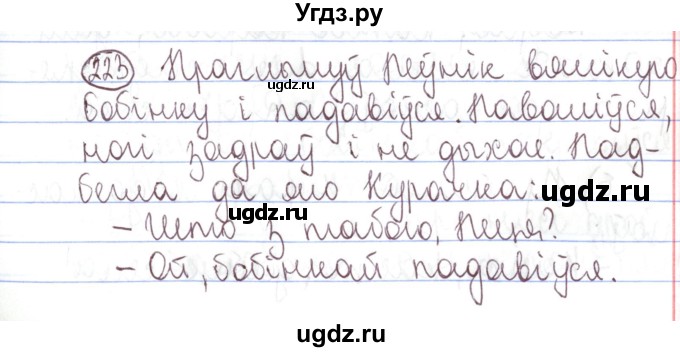 Угдз.ру
223 Праглынуў Пеўнік вялікую
бобінку і падавіўся. Паваліўся,
ногі задраў і не дыхае. Пад-
бегла да яго Курачка:
– Што з табою, Пеця?
– Ой, бобінкай падавіўся.
ugdz.ru
ugdz.ru
ugdz.ru
ugdz.ru
ugdz.ru
ugdz.ru